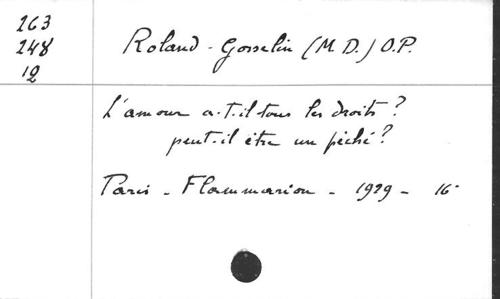 263
248
12
Roland-Gosselin (M D.) O.P.
L'amour a-t-il tous les droits ?
peut-il être un péché ?
Paris - Flammarion - 1929 - 16°